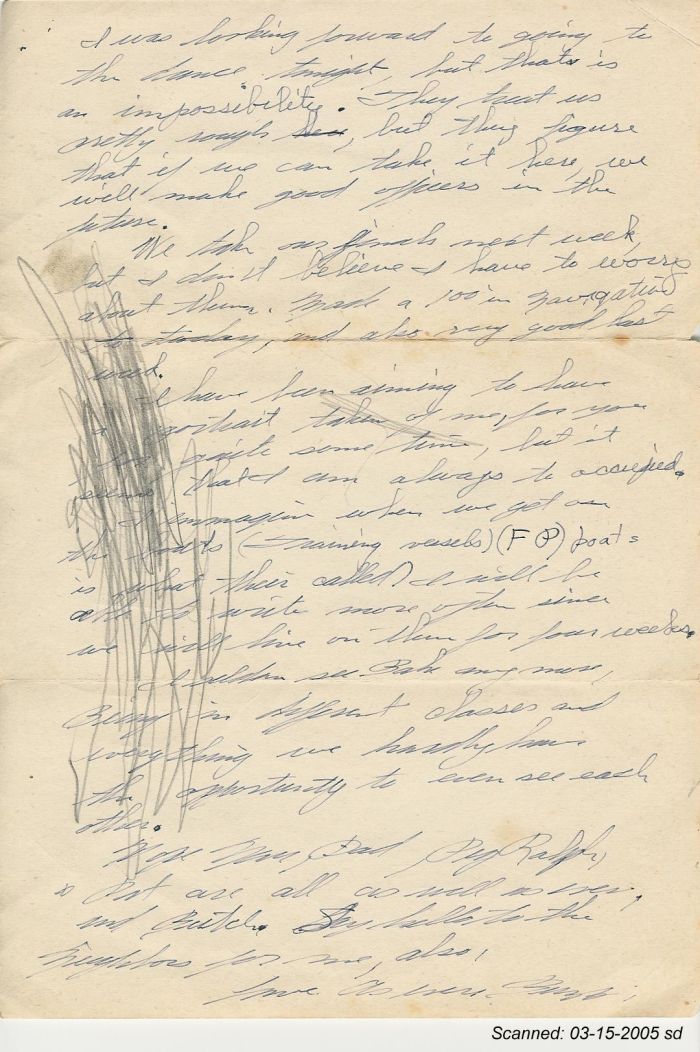 I was looking forward to going to
the dance tonight, but thats is
an impossibility. They treat us
pretty rough, but they figure
that if we can take it here, we
will make good officers in the
future.
We take our finals next week,
but I don't believe I have to worry
about them. Made a 100 in Navigation
today, and also very good last
week.
I have been aiming to have
a portrait taken of me, for you
for quite some time, but it
seems that I am always to occupied.
I immagine when we get on
the boats (Training vessels) (F P) boats
is what their called) I will be
able to write more often since
we will live on them for four weeks.
I seldom see any more,
Being in different classes and
everything we hardly have
the opportunity to even see each
other.
Hope Mom, Dad, Peg, Ralph,
& Pat are all as well as ever,
and Butch. Say hello to the
neighbors for me, also,
Love As ever
Scanned: 03-15-2005 sd